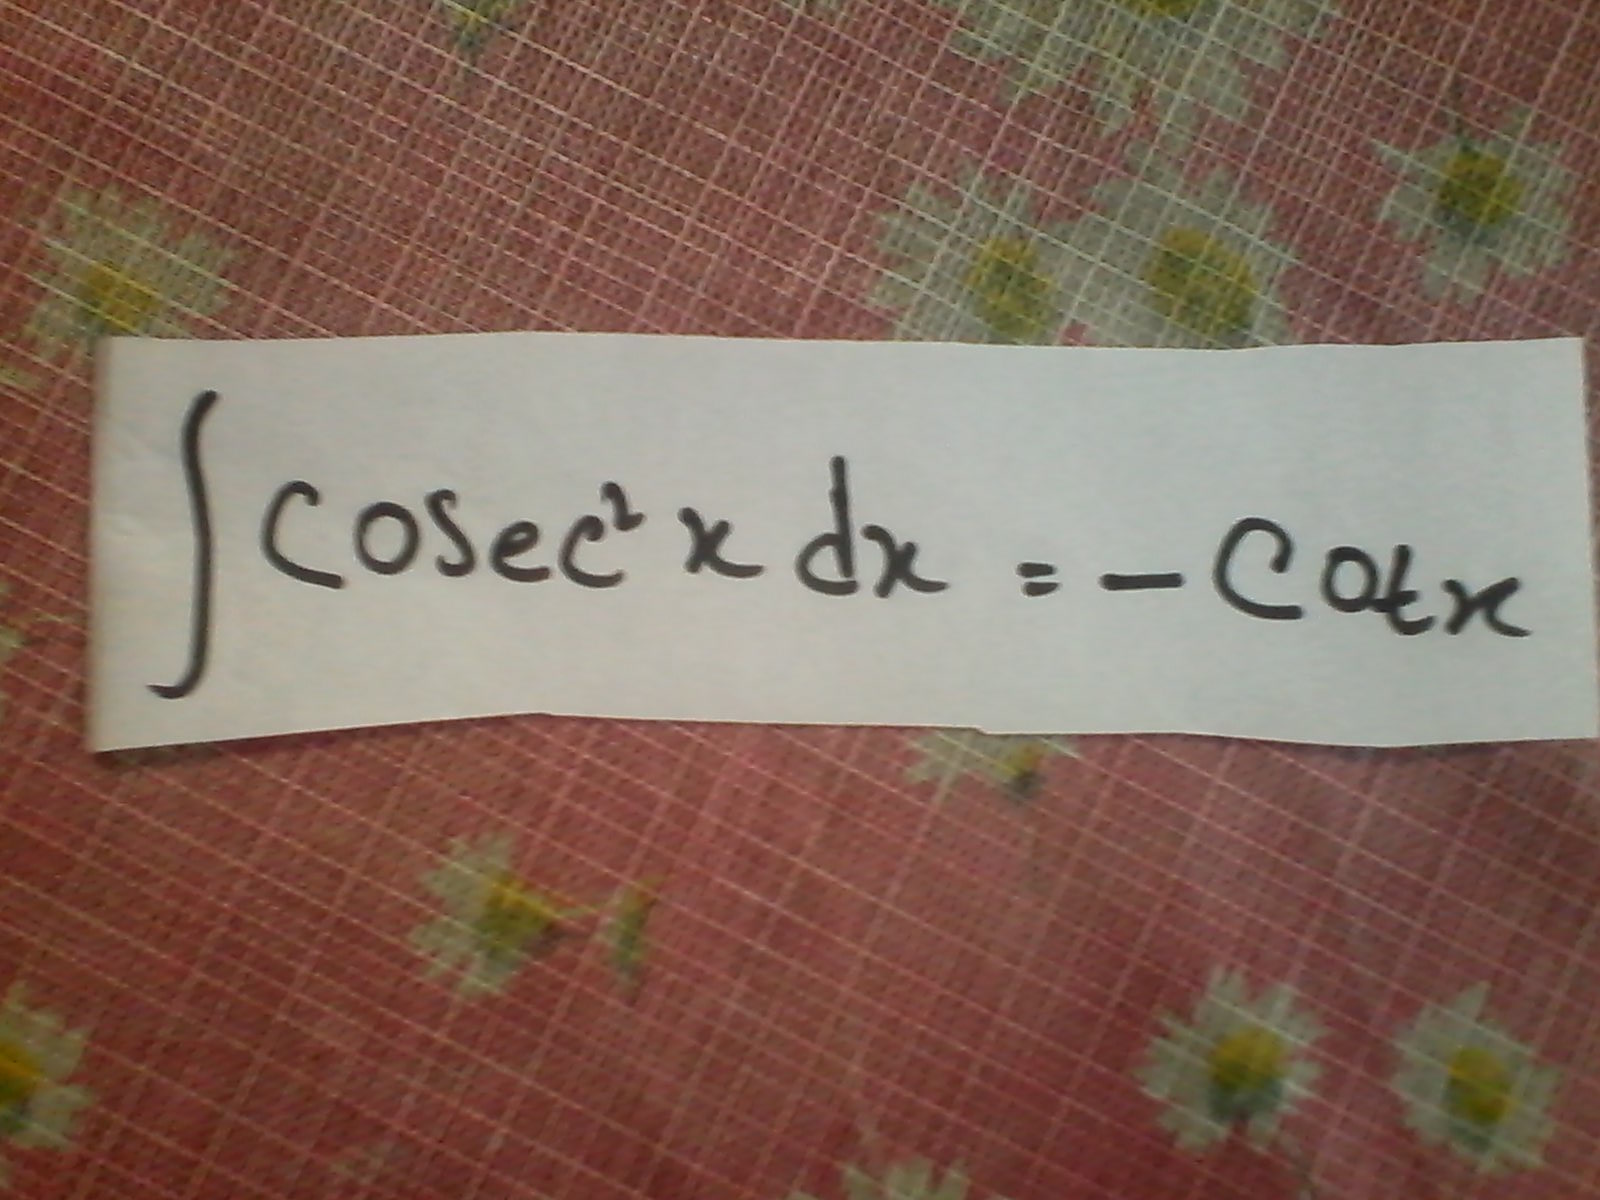 ∫ cosec² x dx = - cotx